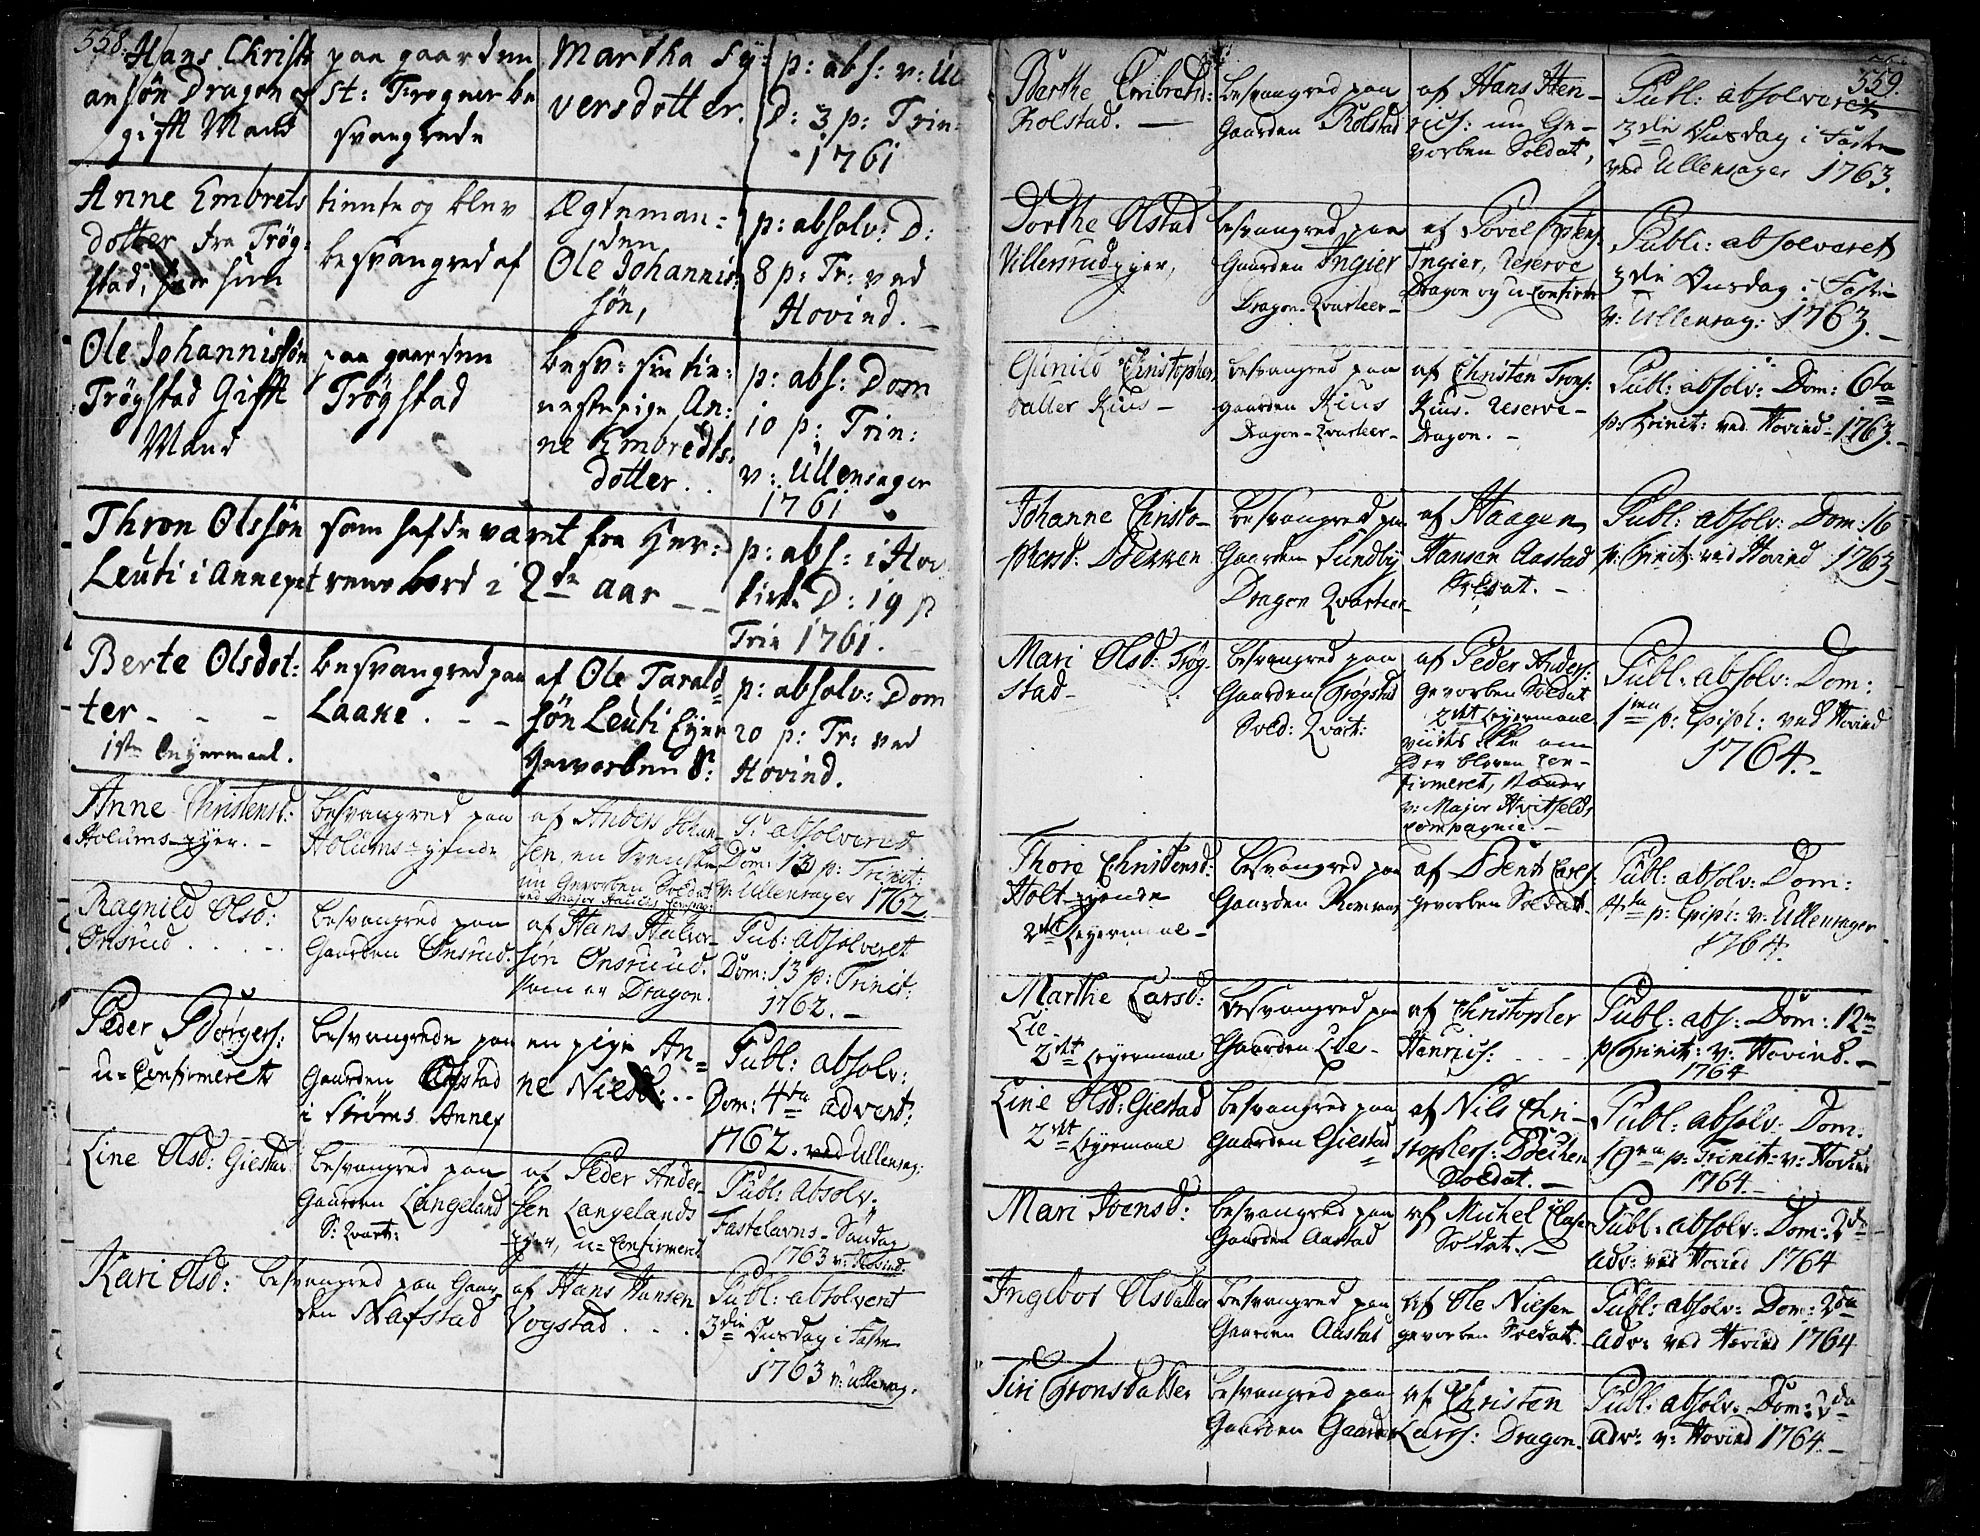 558.
Hans Christi
ansøn Dragon og
gift Mand
paa gaarden
St: Trogner be
svangrede
Martha Sÿ:
versdotter.
p: abs: v: Ul
D: 3 p: Trin:
1761
Anne Embrets
dotter fra Trøg:
stad, som
tiente og blev
besvangred af
Ægteman:
den
Ole Johannis:
søn,
p: absolv: D:
8 p: Tr: ved
Hovind. –
Ole Johannissøn
Trøgstad Gift
Mand
paa gaarden
Trøgstad
besv: sin tie:
nestepige An:
ne Embredts:
dotter . .
p: abs: Dom
10 p: Trin:
v: Ullensager
1761
Thron Olssøn
Leuti i Annexet
som hafde været fra Her:
rens bord i 2de aar _ _
p: abs: i Hov
kirke D: 19 p
Trin 1761.
Berte Olsdot:
ter - - -
1ste Leyermaal.
besvangred paa
Laake. - -
af Ole Tarald=
søn Leuti Eyer
Gevorben S:
p: absolv: Dom
20 p: Tr: ved
Hovind.
Anne Christensd:
Holums-eyer. -
besvangred paa
Holums-eyende
af Anders Johan-
sen, en Svensk
un Gevorben Soldat
ved Major
P: absolvered
Dom: 13 p: Trinit:
v: Ullensager 1762.
Ragnild Olsd:
Onsrud . . -
besvangred paa
Gaarden Onsrud.
af Hans Halvor-
søn Onsruud.
som er Dragon.
Pub: absolveret
Dom: 13 p: Trinit:
1762. –
Peder Børgers:
u-Confirmeret
besvangrede paa
Gaarden Afstad
i Strøms Annex
en pige An=
ne Nielsd: . -
Publ: absolv:
Dom: 4ta advent:
1762. ved Ullensag:
Line Olsd: Giestad
besvangred paa
Gaarden Langeland
S: Qvart:
af Peder Ander-
sen Langelands
eyer, u-Confirmeret
Publ: Absolv:
Fastelavns-Søndag
1763 v: Hovind.
Kari Olsd:
besvangred paa Gaar-
den Nafstad
af Hans Hansen
Vogstad . . .
Publ: absolvert
3die Onsdag i Faste
1763 v: Ullensag.
559.
Barthe Embretsd:
Kolstad. —
besvangred paa
Gaarden Kolstad
af Hans Hen-
rics: un Ge-
vorben Soldat,
Publ: absolveret
3die Onsdag i Faste
ved Ullensager 1763.
Dorthe Olstad
Villersrud eyer,
besvangred paa
Gaarden Ingier
Dragon-Qvarteer-
af Povel
Ingier, reserve
Dragon og u-Confirm
Publ: absolveret
3die Onsdag i Faste
v: Ullensag: 1763. –
Gunild Christopher
datter Kius –
besvangred paa
gaarden Kius
Dragon-Qvarteer-
af Christen Trons:
Kius. reserve-
Dragon. -
Publ: absolv: Dom: 6ta
p: Trinit: ved Hovind 1763. –
Johanne Christo-
phersd: Becken
besvangred paa
Gaarden Sundby
Dragon Qvarteer-
af Haagen
Hansen Aastad
Soldat. -
Publ: absolv: Dom: 16
p: Trinit: ved Hovind 1763 –
Mari Olsd: Trøg-
stad-
besvangred paa
Gaarden Trøgstad
Sold: Qvart:
af Peder Anders:
gevorben Soldat
2det Leyermaal
vidste ikke om
Der bleven con-
firmeret, stander
v: Major Hvitfelds
compagnie. –
Publ: absolv: Dom:
1ma p: Epiph: ved Hovind
1764. –
Thore Christensd:
Holt-eyende
2det Leyermaal –
besvangred paa
Gaarden
af Bent Lars:
gevorben Soldat.
Publ: absolv: Dom:
4ta p: Epiph: v: Ullensager
1764.
Marthe Larsd:
Lie-
2det Leyermaal
besvangred paa
Gaarden Lie-
af Christopher
Henrics: . - -
Publ: abs: Dom: 12m
p Trinit: v: Hovind. –
1764
Line Olsd: Giestad
2det Leyermaal
besvangred paa
Gaarden Giestad
af Nils Chri-
stophers: Bechen
Soldat. –
Publ: absolv: Dom:
19na p: Trinit: v: Hovind
1764. –
Mari Joensd:
besvangred paa
Gaarden Aastad
af Michel Clase
Soldat. –
Publ: absolv: Dom: 2da
adv: ved Hovind 1764
Ingebor Olsdatter
besvangred paa
Gaarden Aastad
af Ole Nielsen
gevorben Soldat.
Publ: absolv: Dom: 2da
adv: ved Hovind 1764
Siri Tronsdatter
besvangred paa
Gaarden Gaarder
af Christen
Larss: Dragon.
Publ: absolv: Dom: 2da
adv: v: Hovind 1764. –